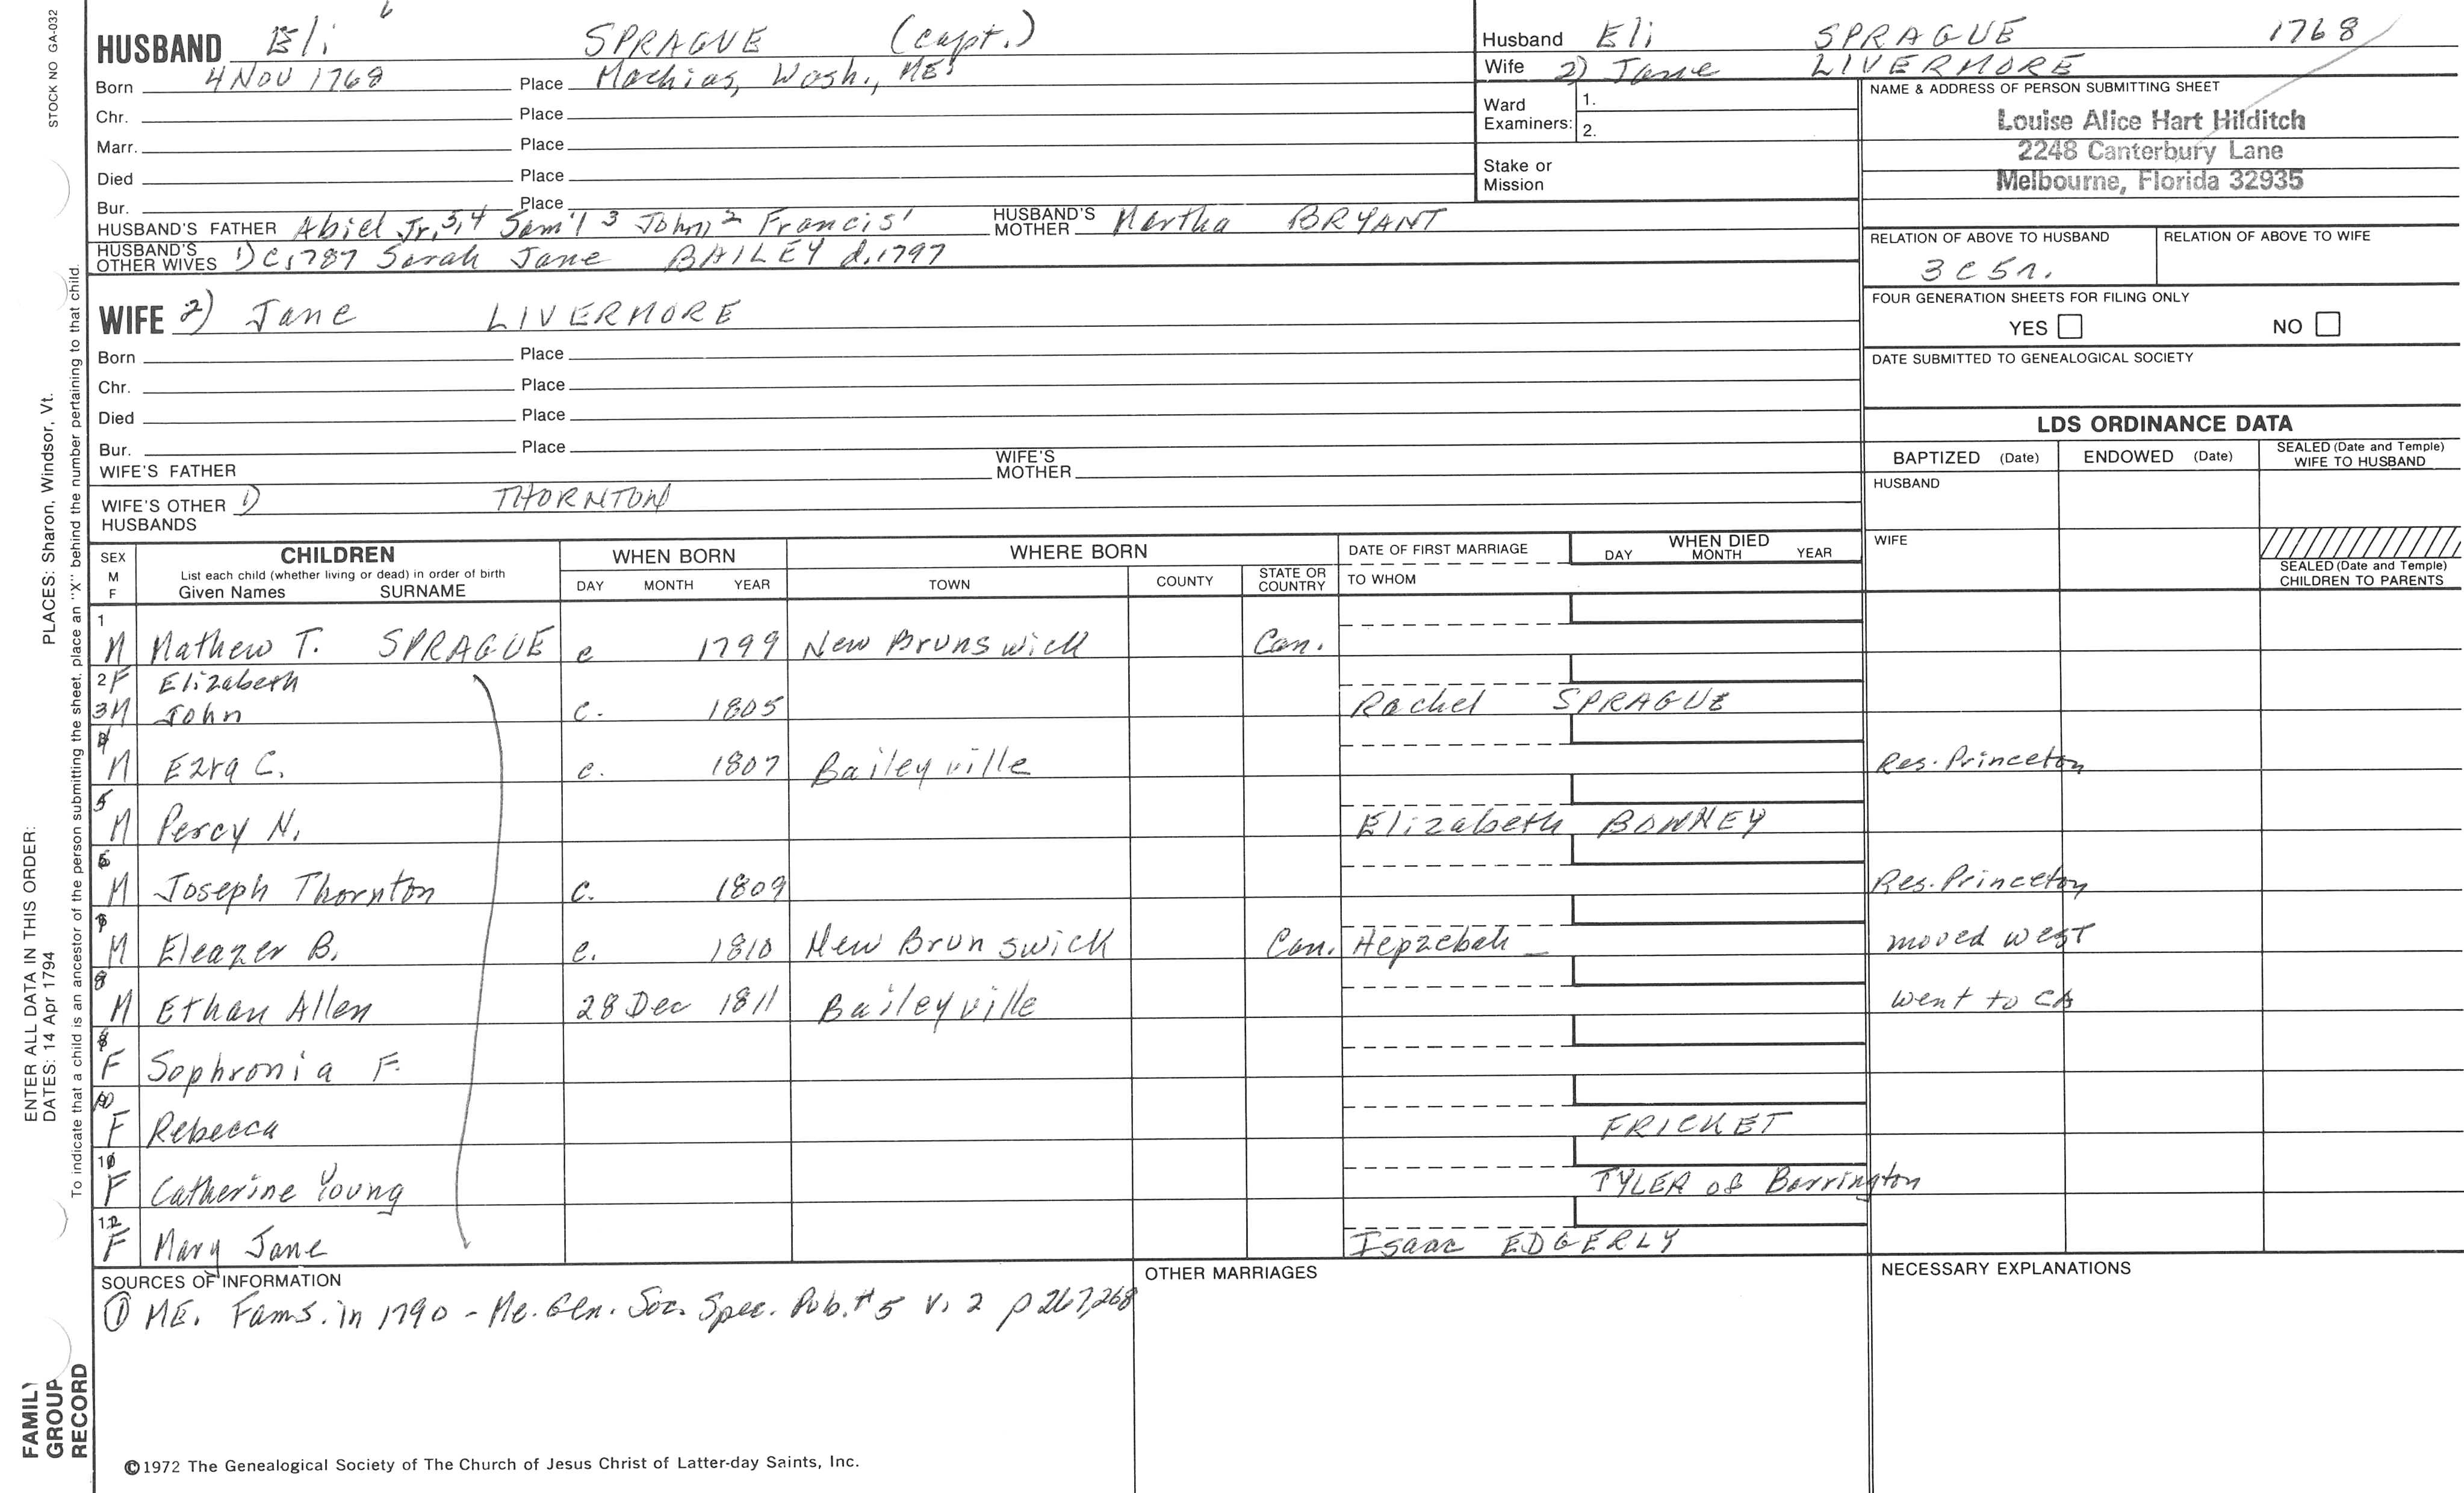 STOCK NO GA-032
HUSBAND Eli 6 SPRAGUE (capt.)
Born 4 NOV 1768 Place Machias, Wash., ME.
Chr. Place
Marr. Place
Died Place
Bur. Place
HUSBAND'S FATHER Abiel Jr, 5, 4 Sam'l 3 John 2 Francis 1 HUSBAND'S MOTHER Martha BRYANT
HUSBAND'S OTHER WIVES 1) c 1787 Sarah Jane BAILEY d. 1797
WIFE 2) Jane LIVERMORE
Born Place
Chr. Place
Died Place
Bur. Place
WIFE'S FATHER WIFE'S MOTHER
WIFE'S OTHER HUSBANDS 1) THORNTON
Husband Eli SPRAGUE 1768
Wife 2) Jane LIVERMORE
Ward Examiners: 1. 2.
Stake or Mission
NAME & ADDRESS OF PERSON SUBMITTING SHEET
Louise Alice Hart Hilditch
2248 Canterbury Lane
Melbourne, Florida 32935
RELATION OF ABOVE TO HUSBAND RELATION OF ABOVE TO WIFE
3 C 5 r.
FOUR GENERATION SHEETS FOR FILING ONLY
YES NO
DATE SUBMITTED TO GENEALOGICAL SOCIETY
LDS ORDINANCE DATA
BAPTIZED (Date) ENDOWED (Date) SEALED (Date and Temple) WIFE TO HUSBAND
HUSBAND
WIFE
SEALED (Date and Temple) CHILDREN TO PARENTS
SEX M F CHILDREN WHEN BORN WHERE BORN DATE OF FIRST MARRIAGE WHEN DIED
List each child (whether living or dead) in order of birth
Given Names SURNAME DAY MONTH YEAR TOWN COUNTY STATE OR COUNTRY TO WHOM DAY MONTH YEAR
1 M Mathew T. SPRAGUE c 1799 New Brunswick Can.
2 F Elizabeth
3 M John c. 1805 Rachel SPRAGUE
4 M Ezra C. c. 1807 Baileyville Res. Princeton
5 M Percy N. Elizabeth BONNEY
6 M Joseph Thornton c. 1809 Res. Princeton
M Eleazer B. c. 1810 New Brunswick Can. Hepzebah moved west
8 M Ethan Allen 28 Dec 1811 Baileyville went to CA
F Sophronia F.
10 F Rebecca FRICKET
F Catherine Young TYLER of Barrington
12 F Mary Jane Isaac EDGERLY
SOURCES OF INFORMATION
① ME. Fams. in 1790 - Me. Gen. Soc. Spec. Pub. #5 v. 2 p 267, 268
OTHER MARRIAGES
NECESSARY EXPLANATIONS
©1972 The Genealogical Society of The Church of Jesus Christ of Latter-day Saints, Inc.
PLACES: Sharon, Windsor, Vt.
To indicate that a child is an ancestor of the person submitting the sheet, place an "X" behind the number pertaining to that child.
ENTER ALL DATA IN THIS ORDER:
DATES: 14 Apr 1794
FAMILY GROUP RECORD